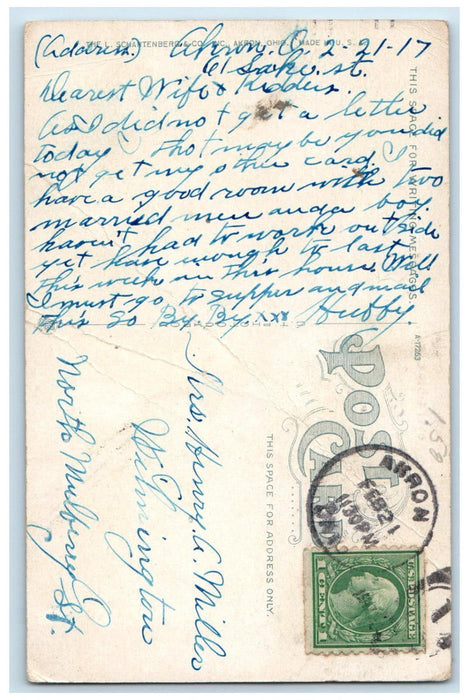 THE L. SCHANTENBERG & CO. INC. AKRON, OHIO. MADE IN U.S.A.
(Address.) Akron, O. 2-21-17
61 Lake st.
Dearest Wife & Kidders.
As I did not get a letter
today thot may be you did
not get my other card. I
have a good room with two
married men and a boy
haven't had to work outside
yet have enough to last
this week in this house. Well
I must go to supper and mail
this so By By xxx Hubby.
THIS SPACE FOR WRITING MESSAGES
A-17263
POST CARD
THIS SPACE FOR ADDRESS ONLY.
Mrs. Henry A. Miller
Wilmington
North Mulbery St.
AKRON
FEB 21
1130 PM
U.S. POSTAGE
1 CENT 1
1.50